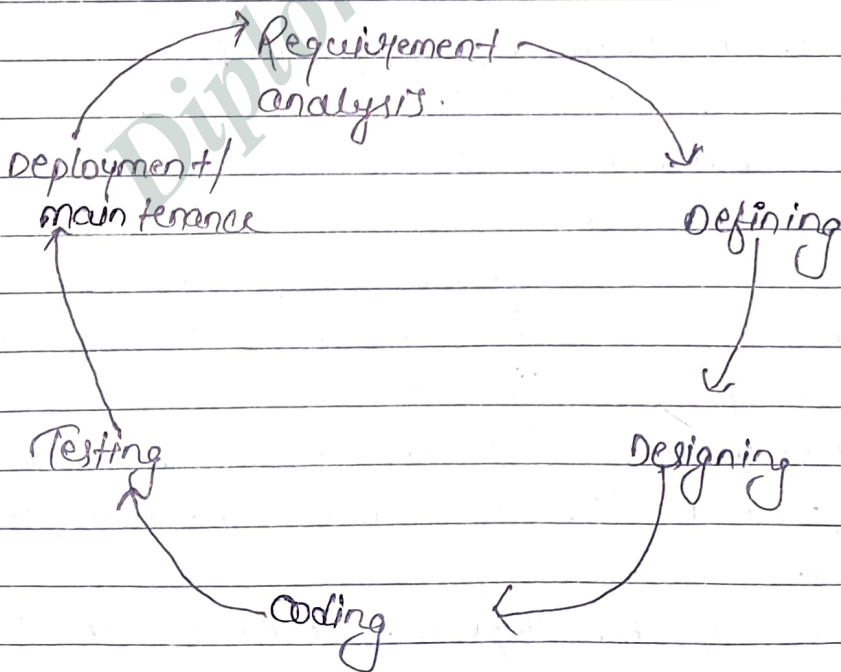 Requirement
analysis.
Defining
Designing
Coding
Testing
Deployment/
maintenance